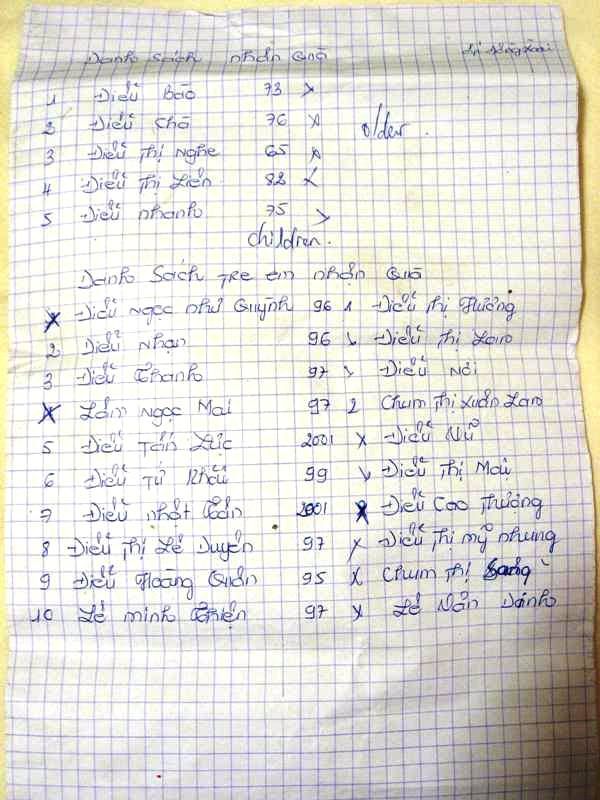 Danh Sách nhận Quà
1 Điểu Bão 73 x
2 Điểu Chõ 76 x older.
3 Điểu Thị Nghe 65 x
4 Điểu Thị Liên 82 x
5 Điểu nhanh 75
children.
Danh Sách Tre em nhận Quà
Điểu Ngọc như Quỳnh 96 1 Điểu Thị Hương
2 Điểu Nhạn 96 Điểu Thị Lan
3 Điểu Thanh 97 Điểu Nôi
Lâm Ngọc Mai 97 2 Chum Thị Xuân Lan
5 Điểu Tấn Lực 2001 x Điểu Nữ
6 Điểu Tứ 99 Điểu Thị Mai
7 Điểu nhật 2001 Điểu Cao Thương
8 Điểu Thị Lệ Duyên 97 x Điểu Thị mỹ nhung
9 Điểu Hoàng Quân 95 x Chum Thị
10 Lê minh Thiện 97 x Lê Văn Dành